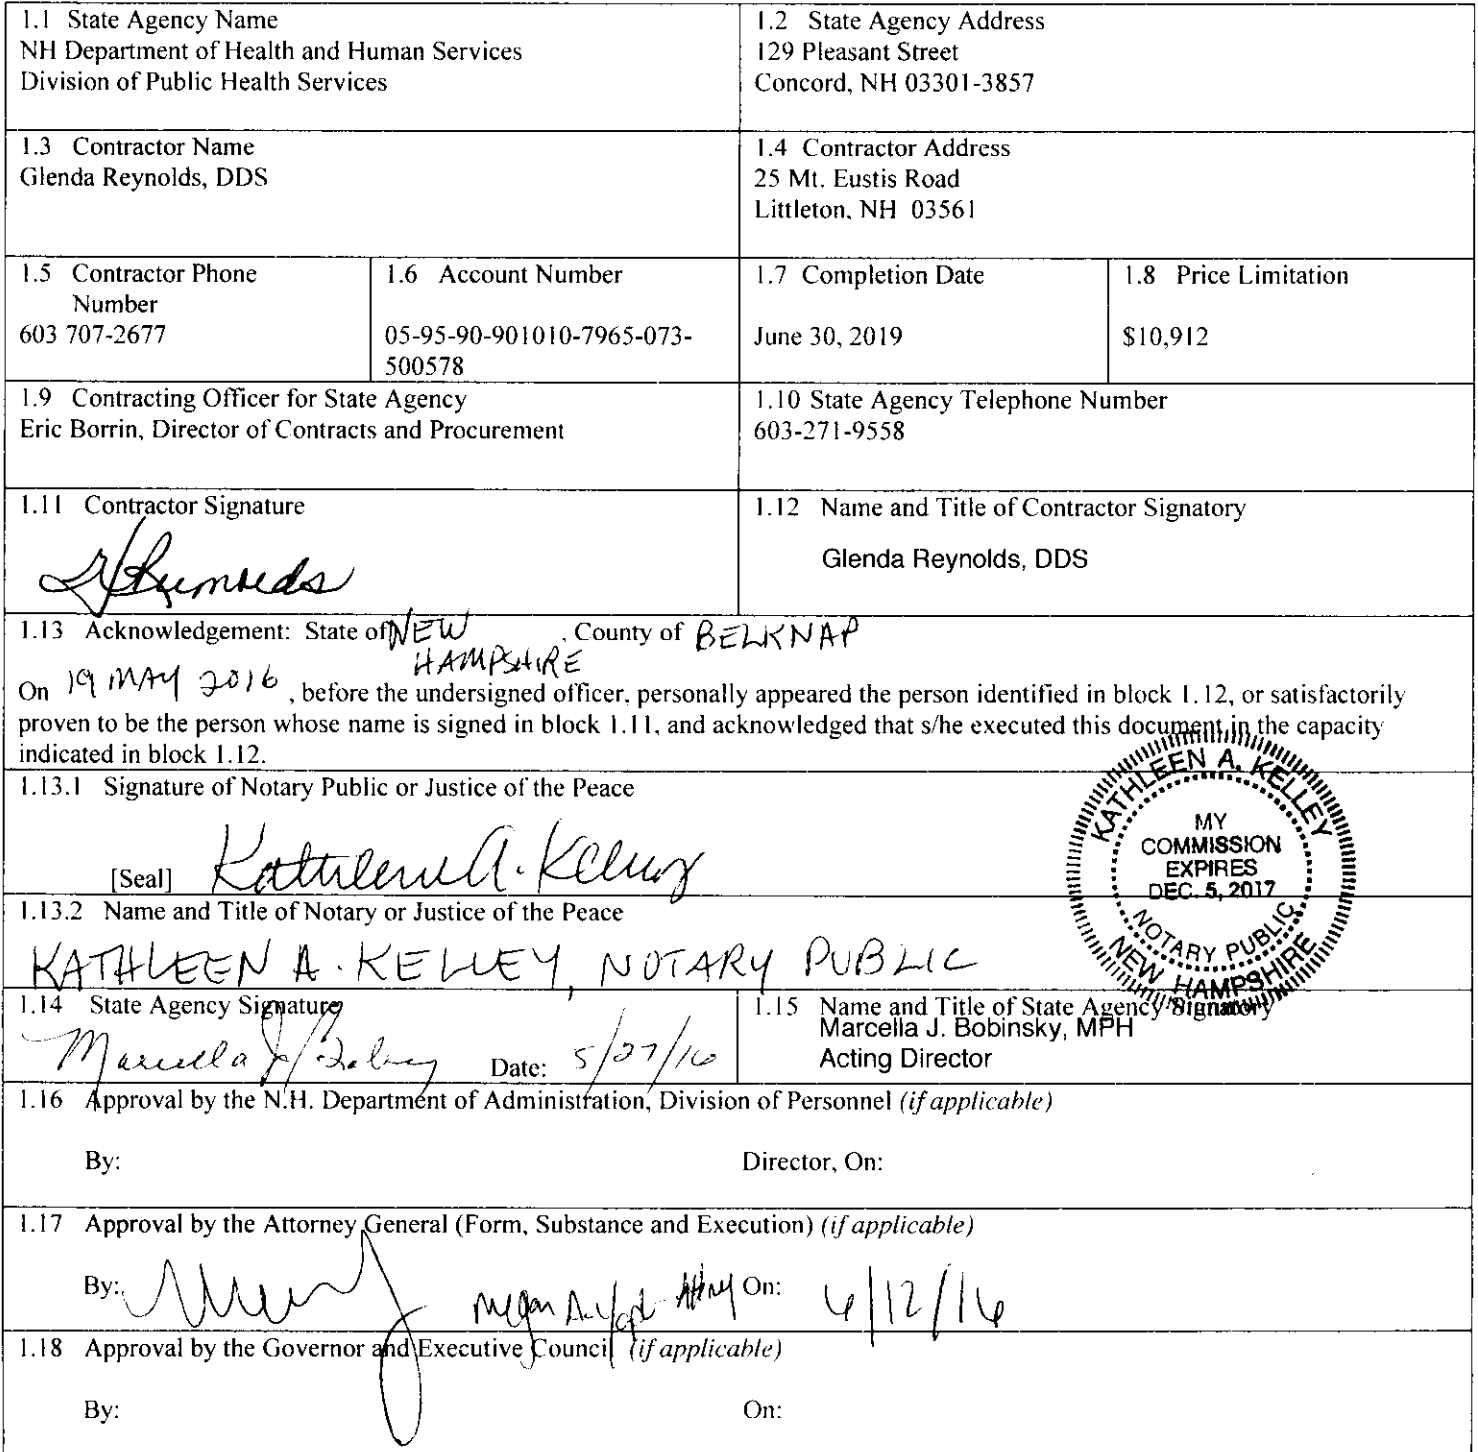 1.1 State Agency Name
NH Department of Health and Human Services
Division of Public Health Services
1.2 State Agency Address
129 Pleasant Street
Concord, NH 03301-3857
1.3 Contractor Name
Glenda Reynolds, DDS
1.4 Contractor Address
25 Mt. Eustis Road
Littleton, NH 03561
1.5 Contractor Phone
Number
603 707-2677
1.6 Account Number
05-95-90-901010-7965-073-
500578
1.7 Completion Date
June 30, 2019
1.8 Price Limitation
$10,912
1.9 Contracting Officer for State Agency
Eric Borrin, Director of Contracts and Procurement
1.10 State Agency Telephone Number
603-271-9558
1.11 Contractor Signature
1.12 Name and Title of Contractor Signatory
Glenda Reynolds, DDS
1.13 Acknowledgement: State of NEW HAMPSHIRE, County of BELKNAP
On 19 MAY 2016, before the undersigned officer, personally appeared the person identified in block 1.12, or satisfactorily
proven to be the person whose name is signed in block 1.11, and acknowledged that s/he executed this document in the capacity
indicated in block 1.12.
1.13.1 Signature of Notary Public or Justice of the Peace
[Seal] Kathleen A. Kelley
KATHLEEN A. KELLEY
MY
COMMISSION
EXPIRES
DEC. 5, 2017
NOTARY PUBLIC
NEW HAMPSHIRE
1.13.2 Name and Title of Notary or Justice of the Peace
KATHLEEN A. KELLEY, NOTARY PUBLIC
1.14 State Agency Signature
Marcella J Date: 5/27/16
1.15 Name and Title of State Agency Signatory
Marcella J. Bobinsky, MPH
Acting Director
1.16 Approval by the N.H. Department of Administration, Division of Personnel (if applicable)
By: Director, On:
1.17 Approval by the Attorney General (Form, Substance and Execution) (if applicable)
By: Megan A. On: 6/12/16
1.18 Approval by the Governor and Executive Council (if applicable)
By: On: